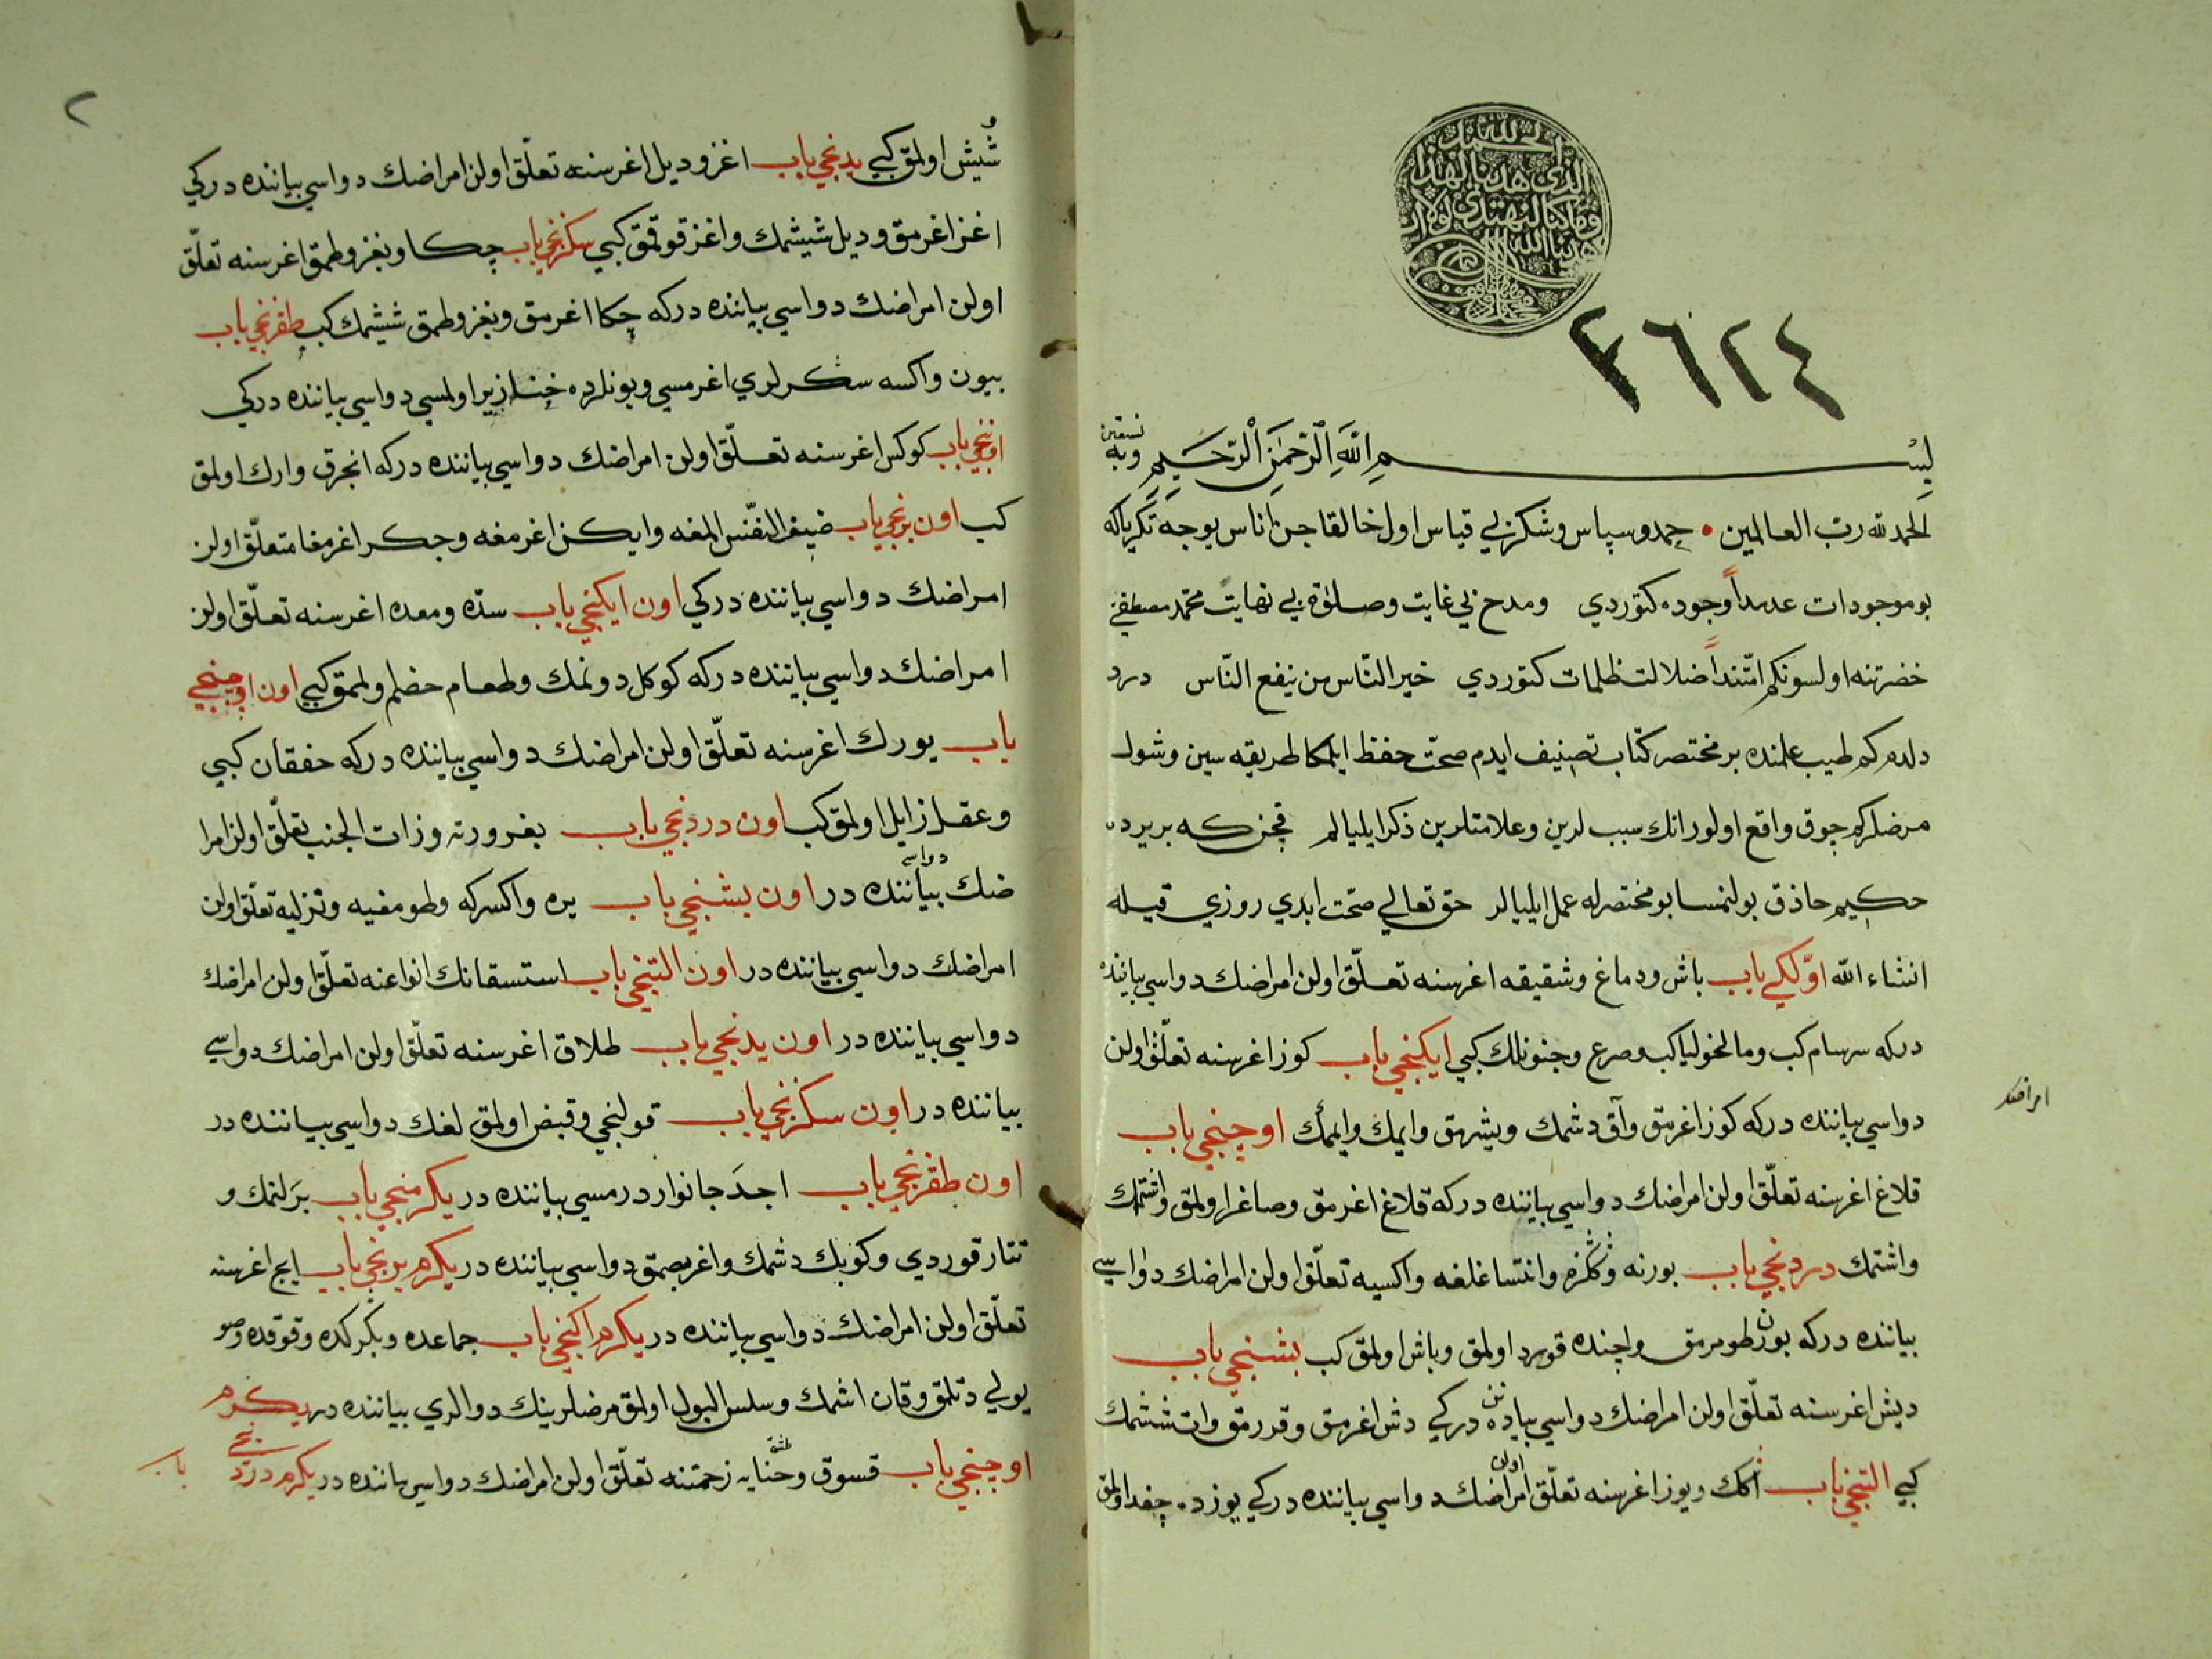 الحمد لله
الذي هدينا لهذا
وما كنا لنهتدي لولا ان
هدينا الله
٣٦٢٤
بسم الله الرحمن الرحيم وبه نستعين
الحمد لله رب العالمين حمد وسپاس وشكر بي قياس اول خالقا جن اناس يوجه تكرياكه
بو موجودات عدمدا وجوده كتوردي ومدح بي غايت وصلوة بي نهايت محمد مصطفى
حضرتنه اولسونكم امتندا ضلالت ظلمات كتوردي خير الناس من ينفع الناس درد
دلدم كم طبيب علمنده بر مختصر كتاب تصنيف ايدم صحت حفظ ايلمكا طريقه سين وشول
مرضلركم چوق واقع اولور انك سبب لرين وعلامتلرين ذكر ايليالم قچن كه بر يرده
حكيم حاذق بولنمسا بو مختصرله عمل ايليالر حق تعالي صحت ابدي روزي قيله
انشاء الله اوّلكي باب باش ودماغ وشقيقه اغرسنه تعلّق اولن امراضك دواسي بياننده
دركه سرسام كب ومالخوليا كب وصرع وجنونلك كبي ايكنجي باب كوز اغرسنه تعلّق اولن
امراضك
دواسي بياننده دركه كوز اغرمق وآق دشمك ويشرمق وايمك اوچنجي باب
قلاغ اغرسنه تعلّق اولن امراضك دواسي بياننده دركه قلاغ اغرمق وصاغر اولمق واشتمك
واشتمك دردنجي باب بورنه وانتسا غلغه واكسيه تعلّق اولن امراضك دواسي
بياننده دركه بورن طومرمق واچنده قورد اولمق وباش اولمق كب بشنجي باب
ديش اغرسنه تعلّق اولن امراضك دواسي بياننده دركي دش اغرمق وقدرمق وات ششمك
كبي التنجي باب اكك ويوز اغرسنه تعلّق اولن امراضك دواسي بياننده دركي يوزده چغد اولمق
٢
شيش اولمق كبي يدنجي باب اغز وديل اغرسنه تعلّق اولن امراضك دواسي بياننده دركي
اغز اغرمق وديل شيشمك واغز قوقمق كبي سكزنجي باب چكا وبغز وطمق اغرسنه تعلّق
اولن امراضك دواسي بياننده دركه چكا اغرمق وبغز وطمق ششمك كب طقزنجي باب
بيون واكسه سكرلري اغرمسي وبونلرده خنازير اولمسي دواسي بياننده دركي
اوننجي باب كوكس اغرسنه تعلّق اولن امراضك دواسي بياننده دركه انجرق وارك اولمق
كب اون برنجي باب ضيق النفّس المغه وايكن اغرمغه وجكر اغرمغا متعلّق اولن
امراضك دواسي بياننده دركي اون ايكنجي باب سدّه ومعده اغرسنه تعلّق اولن
امراضك دواسي بياننده دركه كوكل دونمك وطعام حضم ولمق كبي اون اوچنجي
باب يورك اغرسنه تعلّق اولن امراضك دواسي بياننده دركه خفقان كبي
وعقل زايل اولمق كب اون دردنجي باب بغرورته وزات الجنب تعلّق اولن امرا
ضك دواسي بياننده در اون بشنجي باب يره واكسركه وطومغيه ونزليه تعلّق اولن
امراضك دواسي بياننده در اون التنجي باب استسقانك انواعنه تعلّق اولن امراضك
دواسي بياننده در اون يدنجي باب طلاق اغرسنه تعلّق اولن امراضك دواسي
بياننده در اون سكزنجي باب قولنجي وقبض اولمق لغك دواسي بياننده در
اون طقزنجي باب اجد جانوار درمسي بياننده در يكرمنجي باب برلنمك و
تتار قوردي وكوبك دشمك واغر بصمق دواسي بياننده در يكرم برنجي باب ايچ اغرسنه
تعلّق اولن امراضك دواسي بياننده در يكرم اكنجي باب جماعده وبكركده وقوقده وصو
يولي دتلمق وقان اشمك وسلس البول اولمق مرضلرينك دوالري بياننده در يكرم
اوچنجي باب قسوق وحنايه زحمتنه تعلّق اولن امراضك دواسي بياننده در يكرم دردنجي باب